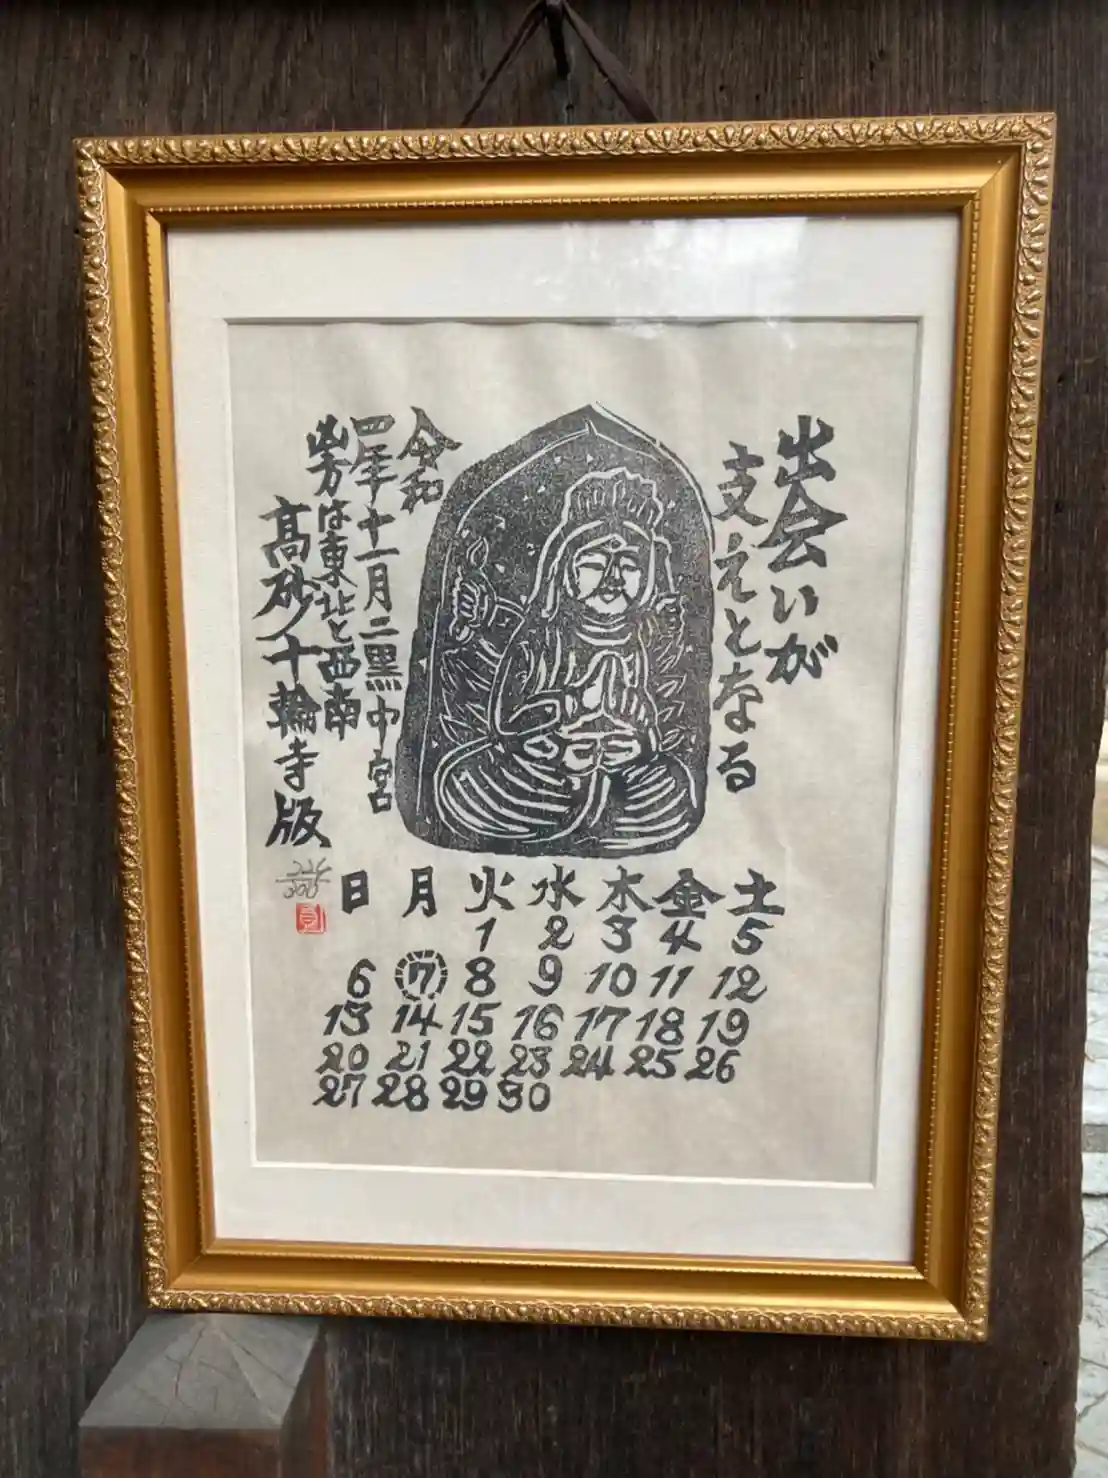 出会いが
支えとなる
令和
四年十一月二黒中宮
凶方は東北と西南
高砂ノ十輪寺版
日 月 火 水 木 金 土
1 2 3 4 5
6 7 8 9 10 11 12
13 14 15 16 17 18 19
20 21 22 23 24 25 26
27 28 29 30